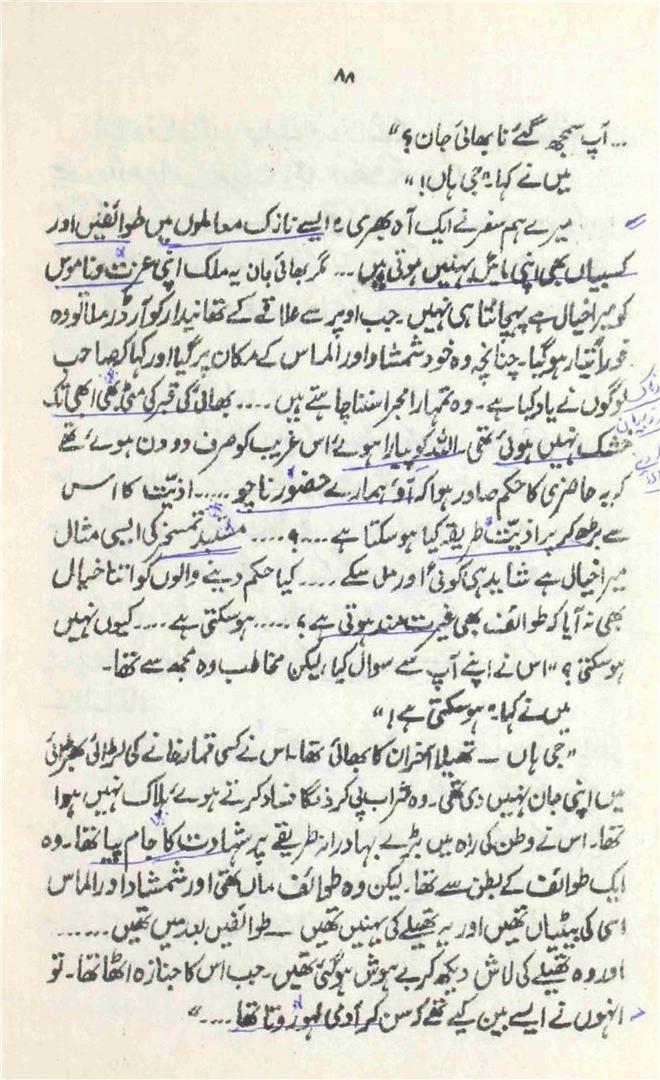 ۸۸
... آپ سمجھ گئے نا بھائی جان؟"
میں نے کہا "جی ہاں!"
میرے ہم سفر نے ایک آہ بھری "ایسے نازک معاملوں میں طوائفیں اور
کسبیاں بھی اپنی مائیں بہنیں ہوتی ہیں ... مگر بھائی جان یہ ملک اپنی عزت و ناموس
کو میرا خیال ہے پہچانتا ہی نہیں۔ جب اوپر سے علاقے کے تھانیدار کو آرڈر ملا تو وہ
فوراً تیار ہو گیا۔ چنانچہ وہ خود شمشاد اور الماس کے مکان پر گیا اور کہا کہ صاحب
لوگوں نے یاد کیا ہے۔ وہ تمہارا مجرا سننا چاہتے ہیں .... بھائی کی قبر کی مٹی بھی ابھی تک
خشک نہیں ہوئی تھی۔ اللہ کو پیارا ہوئے اس غریب کو صرف دو دن ہوئے تھے
کہ یہ حاضری کا حکم صادر ہوا کہ آؤ ہمارے حضور ناچو ..... اذیّت کا اس
سے بڑھ کر پر اذیّت طریقہ کیا ہو سکتا ہے ...؟ .... تمسخر کی ایسی مثال
میرا خیال ہے شاید ہی کوئی اور مل سکے .... کیا حکم دینے والوں کو اتنا خیال
بھی نہ آیا کہ طوائف بھی غیرت مند ہوتی ہے؟ ..... ہو سکتی ہے .... کیوں نہیں
ہو سکتی؟" اس نے اپنے آپ سے سوال کیا، لیکن مخاطب وہ مجھ سے تھا۔
میں نے کہا "ہو سکتی ہے!"
"جی ہاں — تھیلا آخر ان کا بھائی تھا۔ اس نے کسی قمار خانے کی لڑائی بھڑائی
میں اپنی جان نہیں دی تھی۔ وہ شراب پی کر دنگا فساد کرتے ہوئے ہلاک نہیں ہوا
تھا۔ اس نے وطن کی راہ میں بڑے بہادرانہ طریقے پر شہادت کا جام پیا تھا۔ وہ
ایک طوائف کے بطن سے تھا۔ لیکن وہ طوائف ماں تھی اور شمشاد اور الماس
اسی کی بیٹیاں تھیں اور یہ تھیلے کی بہنیں تھیں — طوائفیں بعد میں تھیں ......
اور وہ تھیلے کی لاش دیکھ کر بے ہوش ہو گئی تھیں۔ جب اس کا جنازہ اٹھا تھا۔ تو
انہوں نے ایسے بین کیے تھے کہ سن کر آدمی لہو روتا تھا ...."